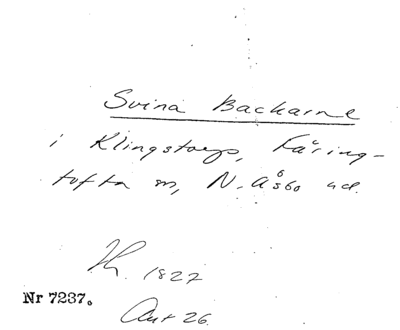 Svina Backarne
i Klingstorps, Fåring-
tofta sn, N. Åsbo hd.
Th. 1827
Nr 7237.
Akt 26.